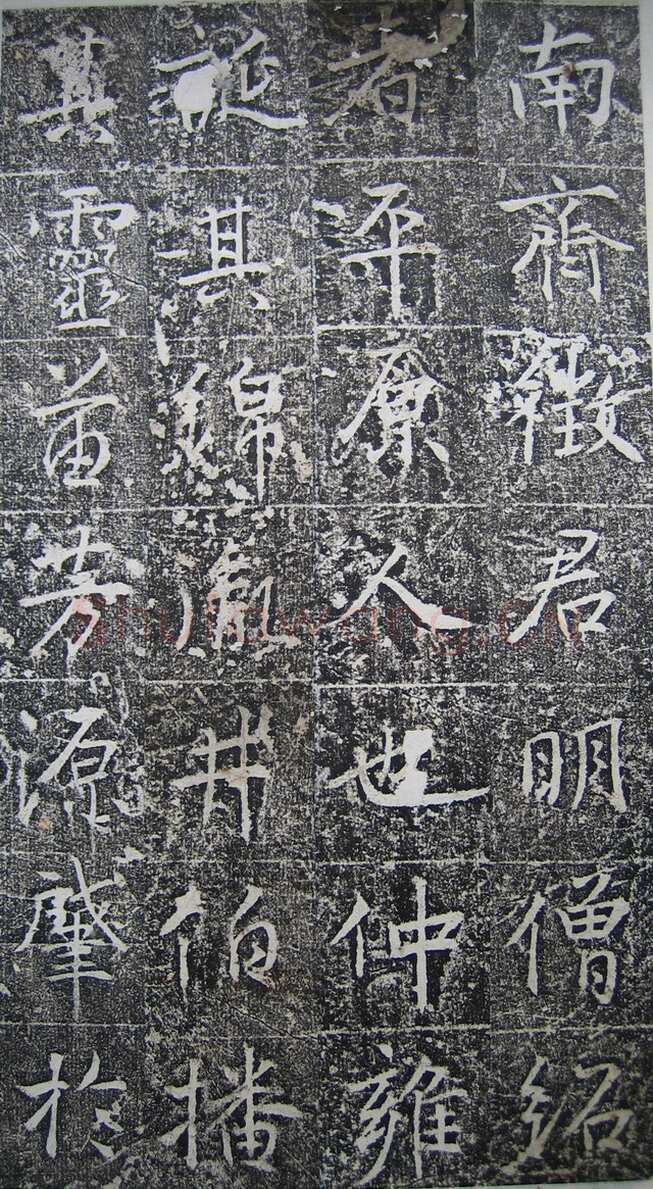 南齊徵君明僧紹
者平原人也仲雍
誕其綿胤井伯播
其靈苗芳源肇於
shufawang.cn